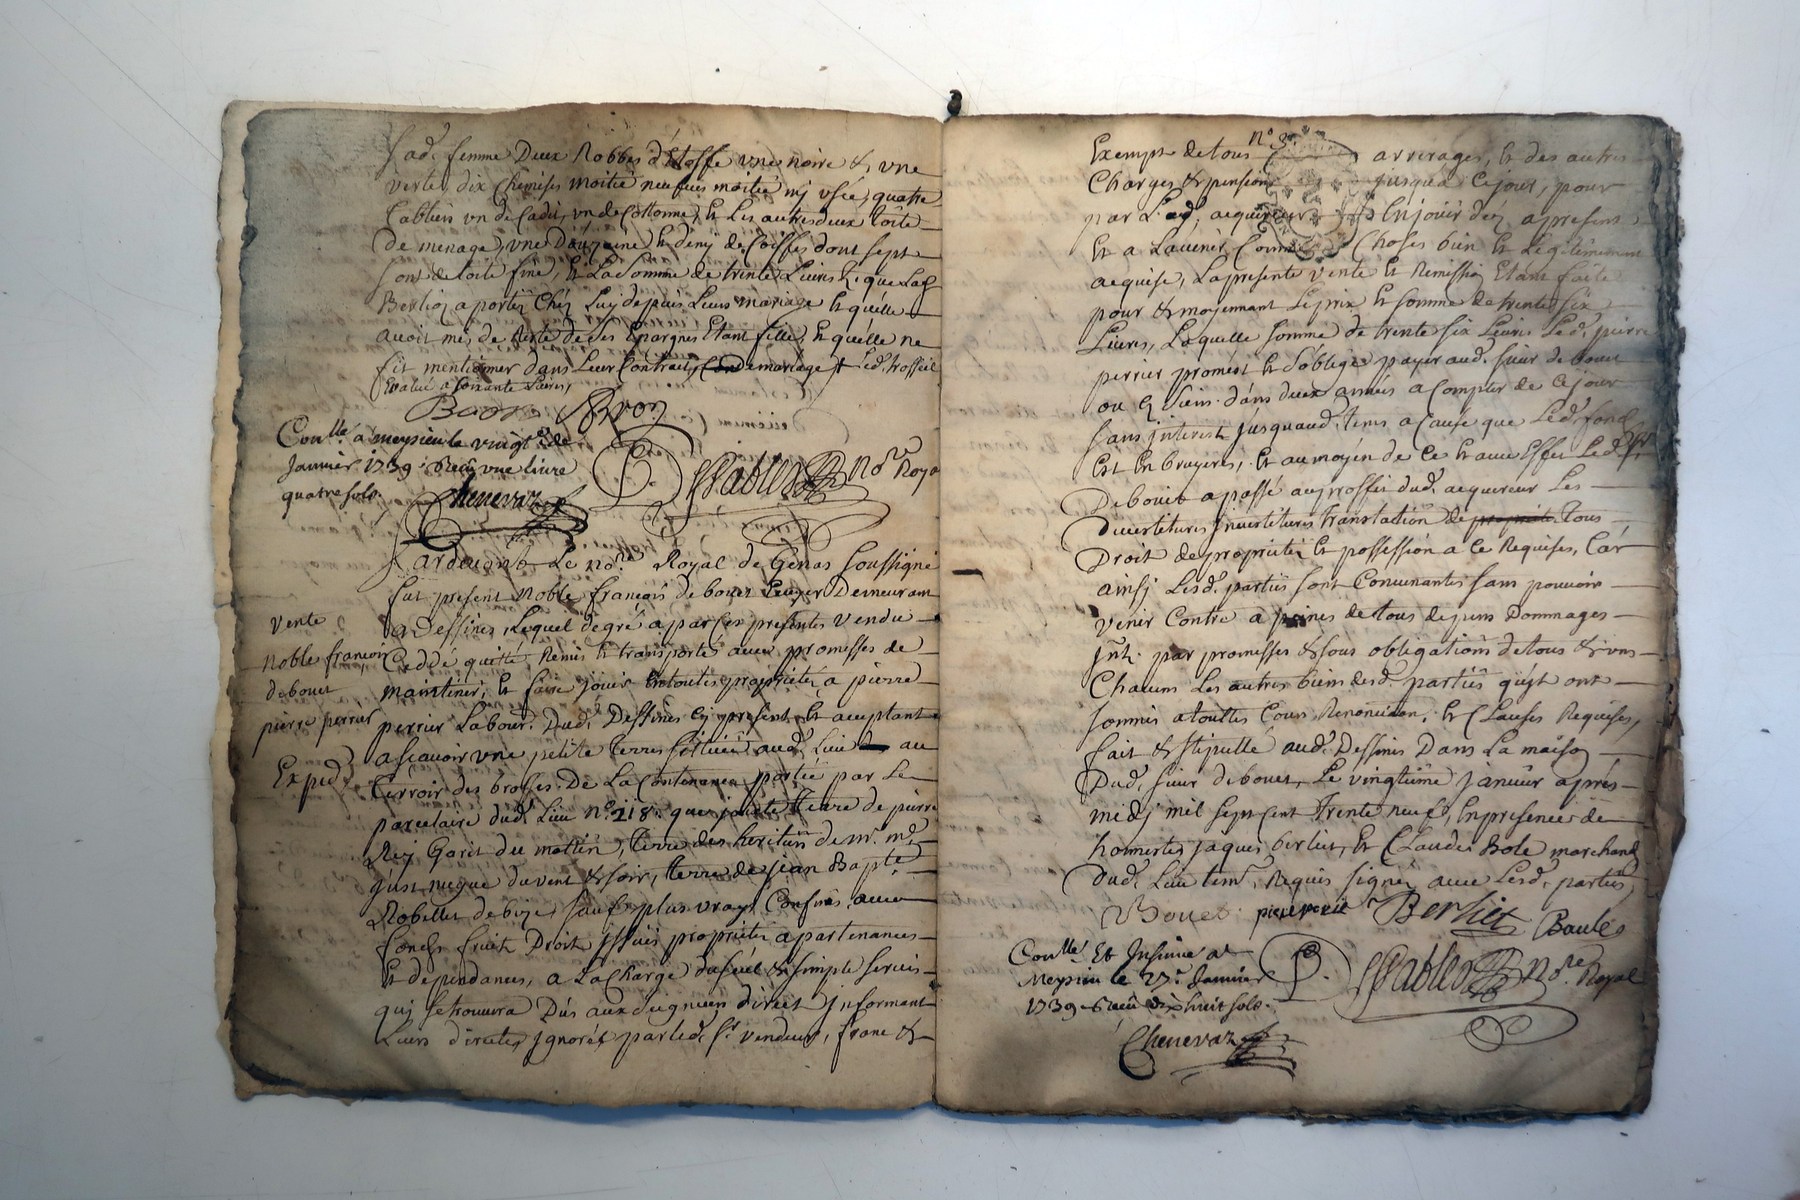 Sad. femme Deux Robbes d'Etoffe une noire & une
verte, dix Chemises moitié neufues moitié my usée, quatre
Tabliers un de Cadis, un de Cottonne, Et Les autres deux toile
De menage, une Douzaine et demy de Coiffes dont sept
sont de toile fine, Et La somme de trente Livres que Lad.
Berlioz a portez Chez Luy depuis Leurs mariage Et quelle
avoit de Reste de ses Epargnes Etant fille, Et quelle ne
fit mentionner dans Leur Contract de mariage led. trosseil
Evalué a soixante Livres,
Conllé a meysieu le vingt de
Janvier 1739. Receu une livre
quatre sols.
Chenevaz
No.re Royal
Pardevant Le no.re Royal de Genas soussigné
fut present Noble francois de bouet Ecuyer Demeurant
a Dessines, Lequel de gré a par ces presentes vendu
vente
Noble francois
debouet
pierre perrier
Exped.
Ceddé quitté, Remis Et transporté avec promesses de
maintenir, Et faire jouir En toutes propriété, a pierre
perrier Labour. Dud. Dessines Cy present Et aceptant
a scavoir une petite terre scituée aud. Lieu au
Terroir des brosses De La Contenance portée par Le
parcelaire dud. Lieu n.o 218. que jouxte terre de pierre
Rey Gorit du mattin, terre des heritiers de m.r
nugue du vent & soir, terre de jean Bapt.e
Robellet de bize, sauf plus vrays Confins, avec
fonds fruit Droit issües propriete apartenances
Et dependances, a La Charge du seul & simple servis
quy se trouvera Dus aux seigneurs direct informant
Leurs directes, ignorés par led. S.r vendeur, franc &
n.o 3.
Exempt de tous arrerages, Et des autres
Charges & pensions jusqua Ce jour, pour
par L.ed. acquereur En jouir dez a present
Et a Lavenir Comme Choses bien Et Legitimement
acquise, La presente vente Et Remission Etant faite
pour & moyennant Le prix Et somme de trente six
Livres, Laquelle somme de trente six Livres Led. pierre
perrier promest Et s'oblige payer aud. sieur de bouet
ou Es siens dans deux années a Compter de Ce jour
sans interest jusquaud. tems a Cause que Led. fond
Est En bruyeres, Et au moyen de Ce Et avec Effet Led. S.r
De bouet a passé au proffit dud. acquereur Les
Devestitures investitures translation de propriete tous
Droit de proprieté Et possession a Ce Requises, Car
ainsy Lesd. parties sont Convenantes sans pouvoir
venir Contre a peines de tous depens Dommages
Int. par promesses & sous obligations de tous & uns
Chacuns Les autres biens desd. parties quyt ont
soumis a touttes Cours Renonciation, Et Clauses Requises,
fait & stipullé aud. Dessines Dans La maison
Dud. sieur de bouet, Le vingtieme janvier aprés
midy mil sept cent Trente neuf, En presences de
honnestes jaques berliet, Et Claude Bole marchand
Dud. Lieu tem.s Requis signez avec Lesd. parties
Bouet pierre perie Berliet Baule
Conllé Et Insinué a
Meysieu le 27.e Janvier
1739 Receu dix huit sols.
No.re Royal
Chenevaz